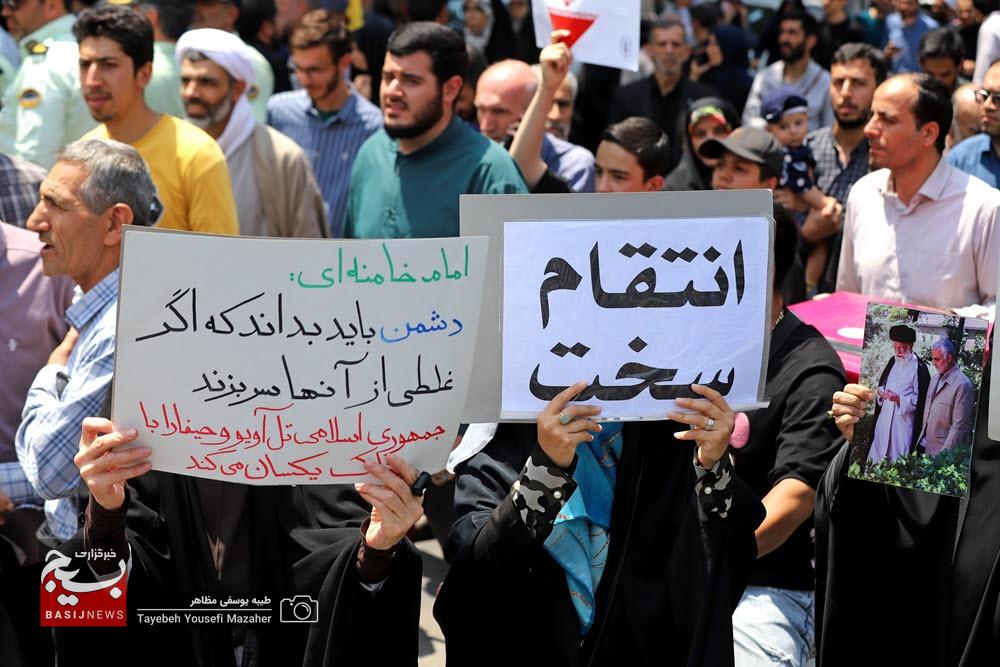 امام خامنه ای:
دشمن باید بداند که اگر
غلطی از آنها سر بزند
جمهوری اسلامی تل آویو و حیفا را با
خاک یکسان می کند
انتقام
سخت
خبرگزاری
بسیج
BASIJNEWS
طیبه یوسفی مظاهر
Tayebeh Yousefi Mazaher